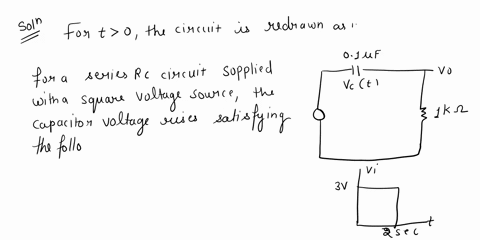 Soln
For t>0, the circuit is redrawn as:
0.1µF
Vo
Vc(t)
for a series Rc circuit sopplied
with a square voltage source, the
capacitor voltage rises satisfying
the follo
1kΩ
Vi
3V
2sec
t